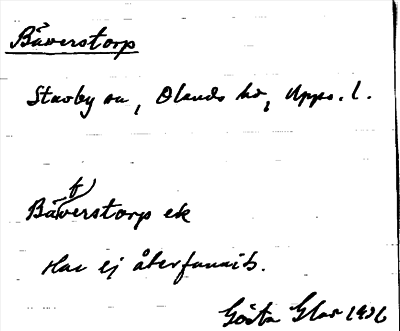 Bäverstorp
Stavby sn, Olands hd, Upps. l.
f)
Bäverstorp ek
Har ej återfunnits.
Gösta Glas 1936